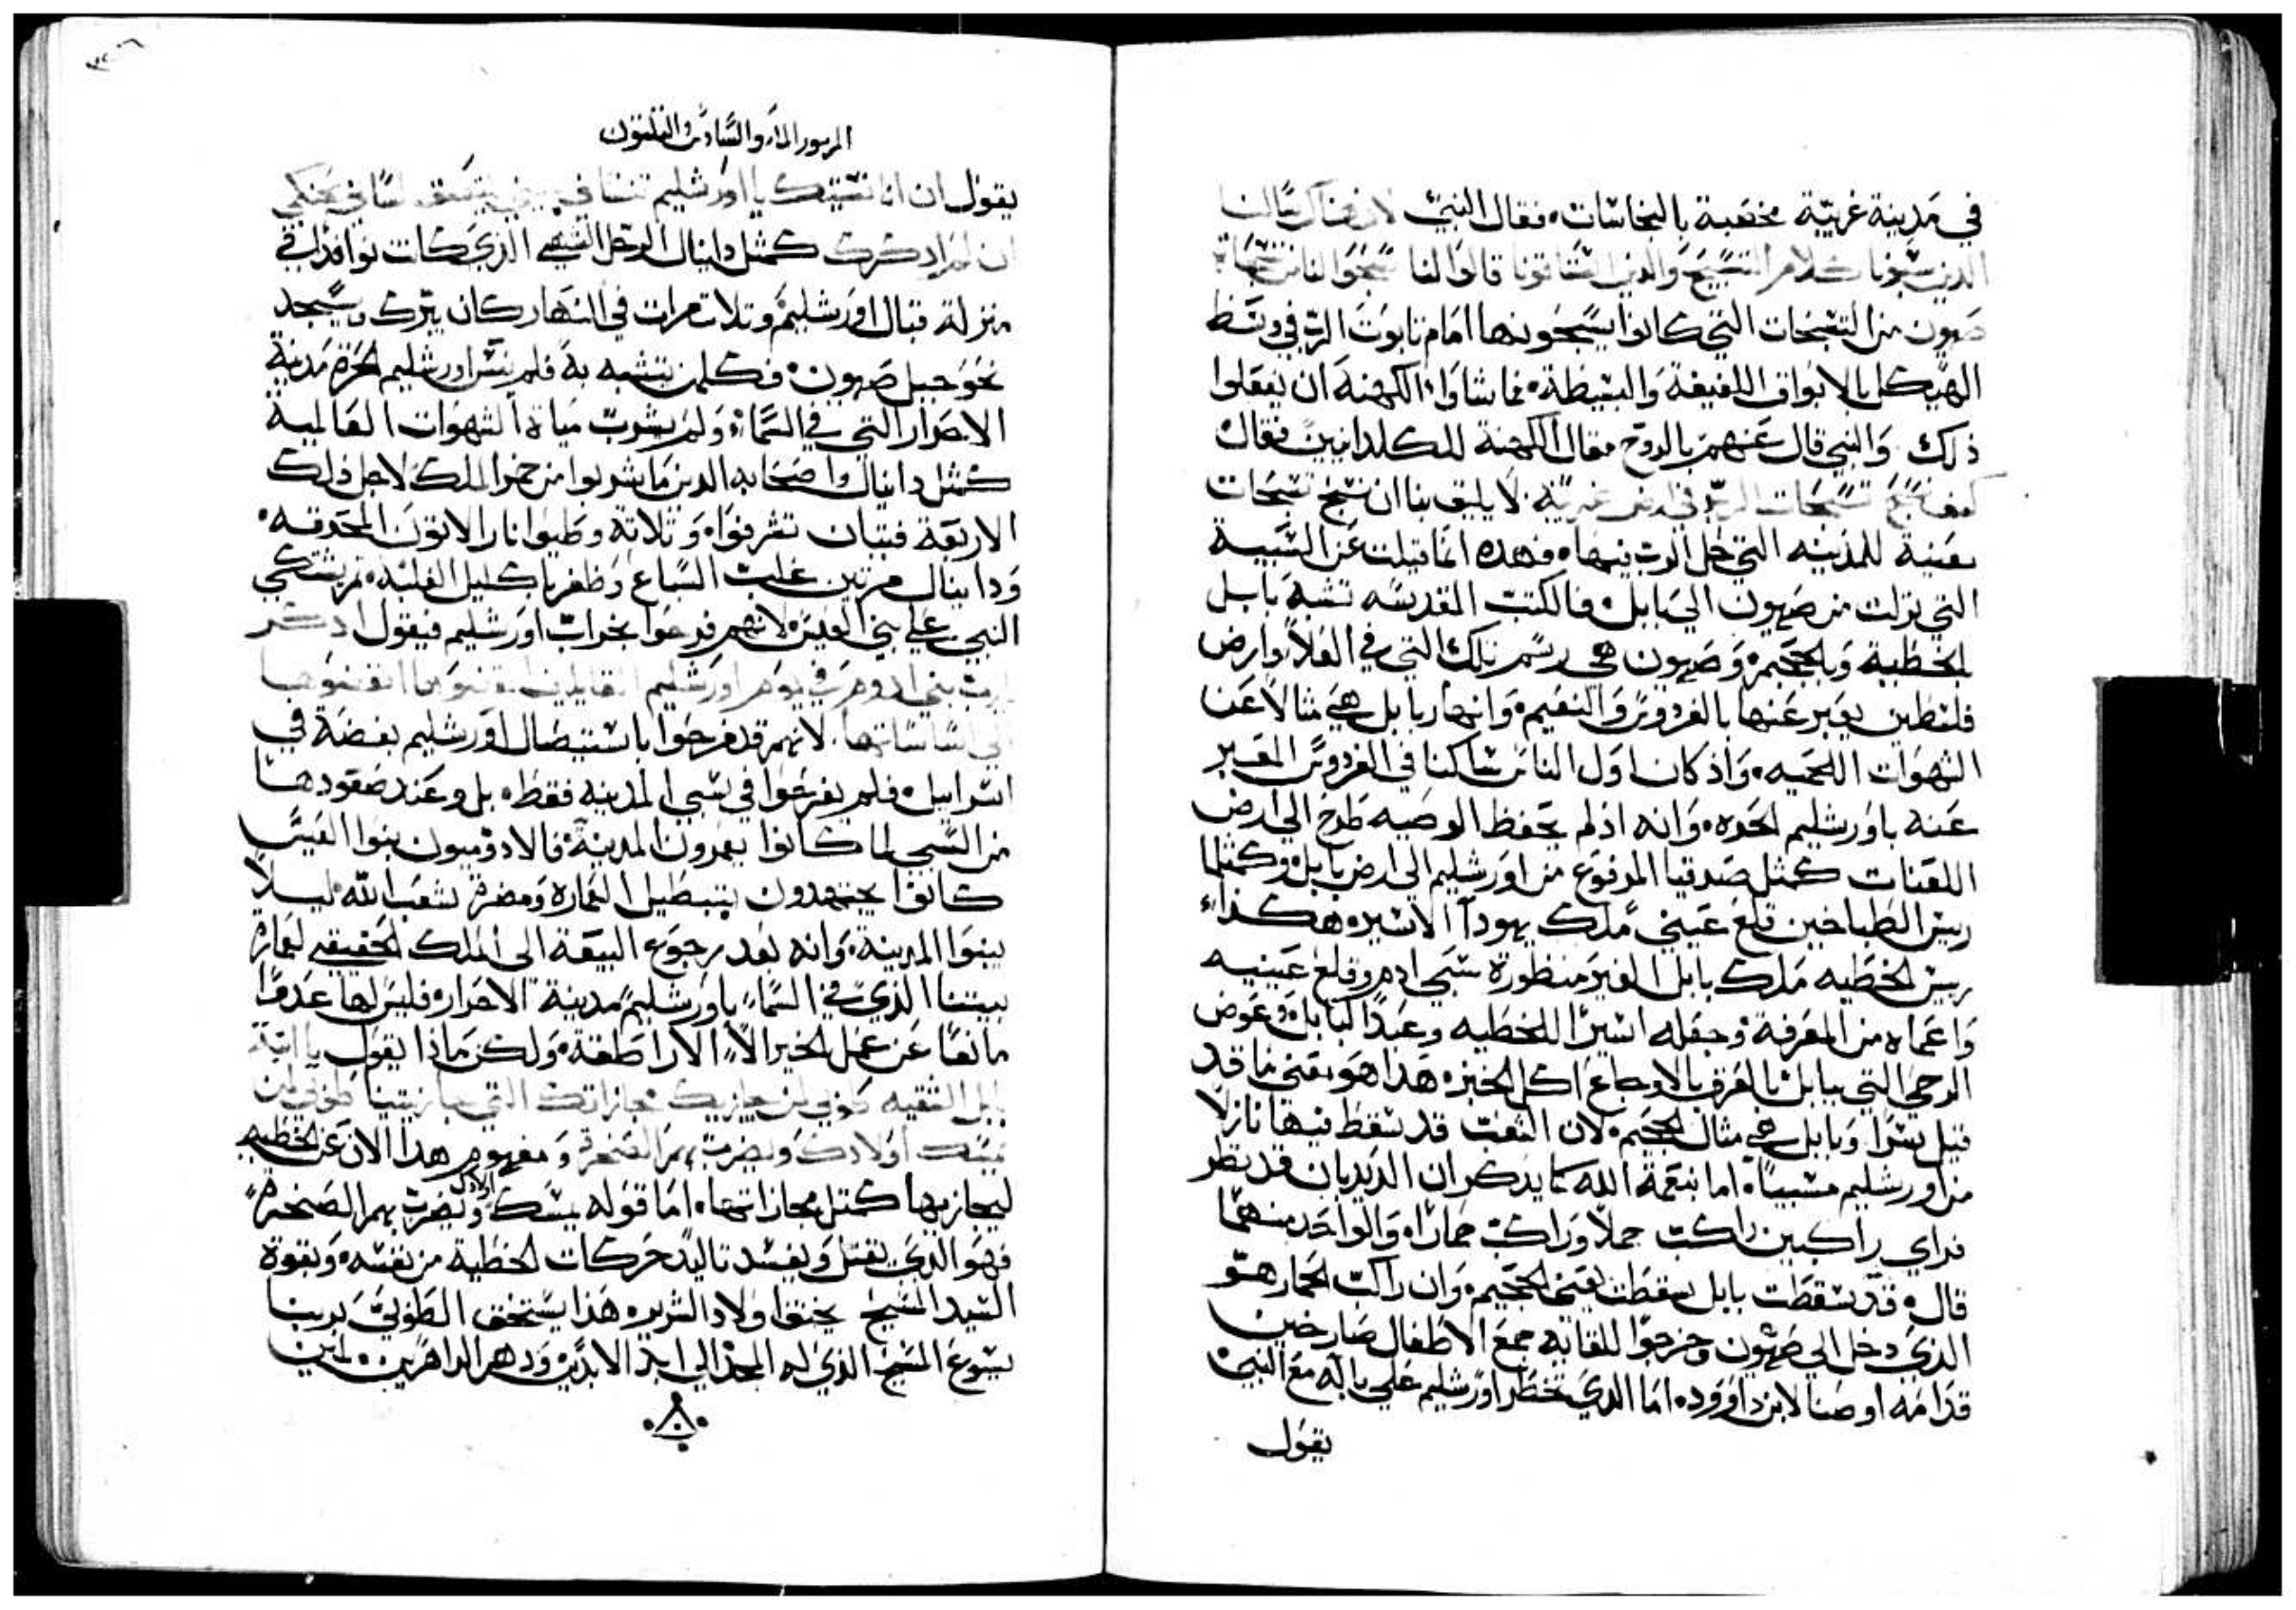 في مدينة غريبة مخصبة بالنجاسات، فقال النبي لان هناك سالنا
الذين سبونا كلام التسبيح والذين استاقونا قالوا لنا سبحوا لنا من تسبحات
صهيون من التسبحات التي كانوا يسبحونها امام تابوت الرب في وسط
الهيكل بالابواق اللفيفة والبسيطة، فما شاوا الكهنة ان يفعلوا
ذلك والنبي قال عنهم بالروح مقال الكهنة للكلدانيين فقال
كيف نسبح تسبحات الرب في ارض غريبة لا يليق بنا ان نسبح تسبحات
بعنية للمدينه التي حل الرب فيها، فهده انما قيلت عن السبية
التي نزلت من صهيون الي بابل، فالكتب المقدسه تشبه بابل
بالخطية وبالجحيم، وصهيون هي رسم تلك التي في العلا، وارض
فلسطين يعبر عنها بالفردوس والنعيم، وانهار بابل هي مثالا عن
الشهوات اللحميه، واذ كان اول الناس ساكنا في الفردوس المعبر
عنه باورشليم الحره، وانه اذ لم يحفظ الوصيه طرح الي ارض
اللعنات كمثل صدقيا المرفوع من اورشليم الي ارض بابل، وكمثلما
ريس الطباخين قلع عيني ملك يهودا الاسير، هكذا
ريس الخطيه ملك بابل الغير منظورة سبي ادم وقلع عينيه
واعماه من المعرفة وجعله اسيرا للخطيه وعبدا لبابل، وعوض
الرحي التي ببابل بالعرق بالاوجاع اكل الخبز، هذا هو بعني ما قد
قيل سرا وبابل هي مثال الجحيم، لان الشعب قد سقط فيها نازلا
من اورشليم مسبيا، اما بنعمة الله كما يدكر ان الديدبان قد نظر
فراي راكبين راكب جملا وراكب حمارا، والواحد منهما
قال، قد سقطت بابل سقطت يعني الجحيم، وان راكب الحمار هو
الذي دخل الي صهيون وخرجوا للقايه جمع الاطفال صارخين
قدامه اوصنا لابن داوود، اما الدي تخطر اورشليم علي باله مع النبي
يقول
المزمور الماه والسادس والتلتون
يقول ان انا نسيتك يا اورشليم تنسا في يميني يلتصق لساني بحنكي
ان لم ادكرك كمثل دانيال الرجل الشهي الذي كانت نوافذ في
منزله قبال اورشليم، وتلات مرات في النهار كان يبرك ويسجد
نحو جبل صهيون، فكلمن يتشبه به فلم ينس اورشليم الحرة مدينة
الاحرار التي في السماء، ولم يشرب مياة الشهوات العالمية
كمثل دانيال واصحابه الدين ما شربوا من خمر الملك لاجل ذلك
الاربعة فتيان تشرفوا، وتلاتة وطيوا نار الاتون المحرقه،
ودانيال مرتين غلب السباع وظفر باكليل الغلبة، تم يشتكي
النبي علي بني العيس، لانهم فرحوا بخراب اورشليم فيقول ادكر
يارب بني ادوم في يوم اورشليم القايلين انقضوها انقضوها
الي اساساتها. لانهم قد فرحوا باستيصال اورشليم بغضة في
اسراييل، فلم يفرحوا في سبي المدينه فقط، بل وعند صعودها
من السبي لما كانوا يعمرون المدينة، فالادوميون بنوا العيس
كانوا يجتهدون بتبطيل العماره ومضرة شعب الله ليلا
يبنوا المدينة، وانه بعد رجوع البيعة الي الملك الحقيقي لعمارة
بيتنا الذي في السماء، باورشليم مدينة الاحرار، فليس لها عدما
مانعا عن عمل الخير الا، الاراطقة، ولكن ماذا يقول يا ابنة
بابل الشقيه طوبي لمن يجازيك مجازاتك التي جازيتينا طوبي لمن
يمسك اولادك ويضرب بهم الصخرة ومفهوم هدا الان عن الخطيه
ليجازيها كمتل مجازاتها، اما قوله يمسك اولادك ويضرب بهم الصخرة،
فهو الدي يقتل ويفسد تاليد حركات الخطية من نفسه، وبقوة
السيد المسيح يخنق اولاد الشرير، هذا يستحق الطوبي بربنا
يسوع المسيح الذي له المجد الي ابد الابدين، ودهر الداهرين. امين